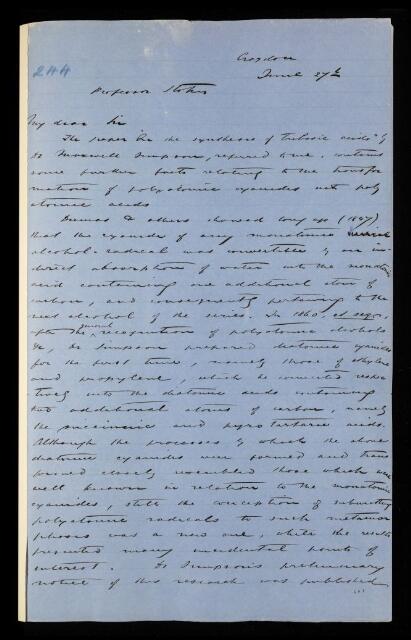 244
Croydon
June 27th
Professor Stokes
My dear Sir
The paper "On the synthesis of Tribasic acids" by
Dr Maxwell Simpson, referred to me, contains
some further facts relating to the transfor
mation of polyatomic cyanides into poly
atomic acids
Dumas & others showed long ago (1847)
that the cyanide of any monatomic
alcohol-radical was convertible by an in
direct absorption of water into the monatomic
acid containing one additional atom of
carbon, and consequently pertaining to the
next alcohol of the series. In 1860
after the general recognition of polyatomic alcohols
&c, Dr Simpson prepared diatomic cyanides
for the first time, namely those of ethylene
and propylene, which he converted respec
tively into the diatomic acids containing
two additional atoms of carbon, namely
the succinic and pyrotartaric acids.
Although the processes by which the above
diatomic cyanides were formed and trans
formed closely resembled those which were
well known in relation to the monatomic
cyanides, still the conception of submitting
polyatomic radicals to such metamor
phoses was a new one, while the results
presented many incidental points of
interest. Dr Simpson's preliminary
notice of this research was published